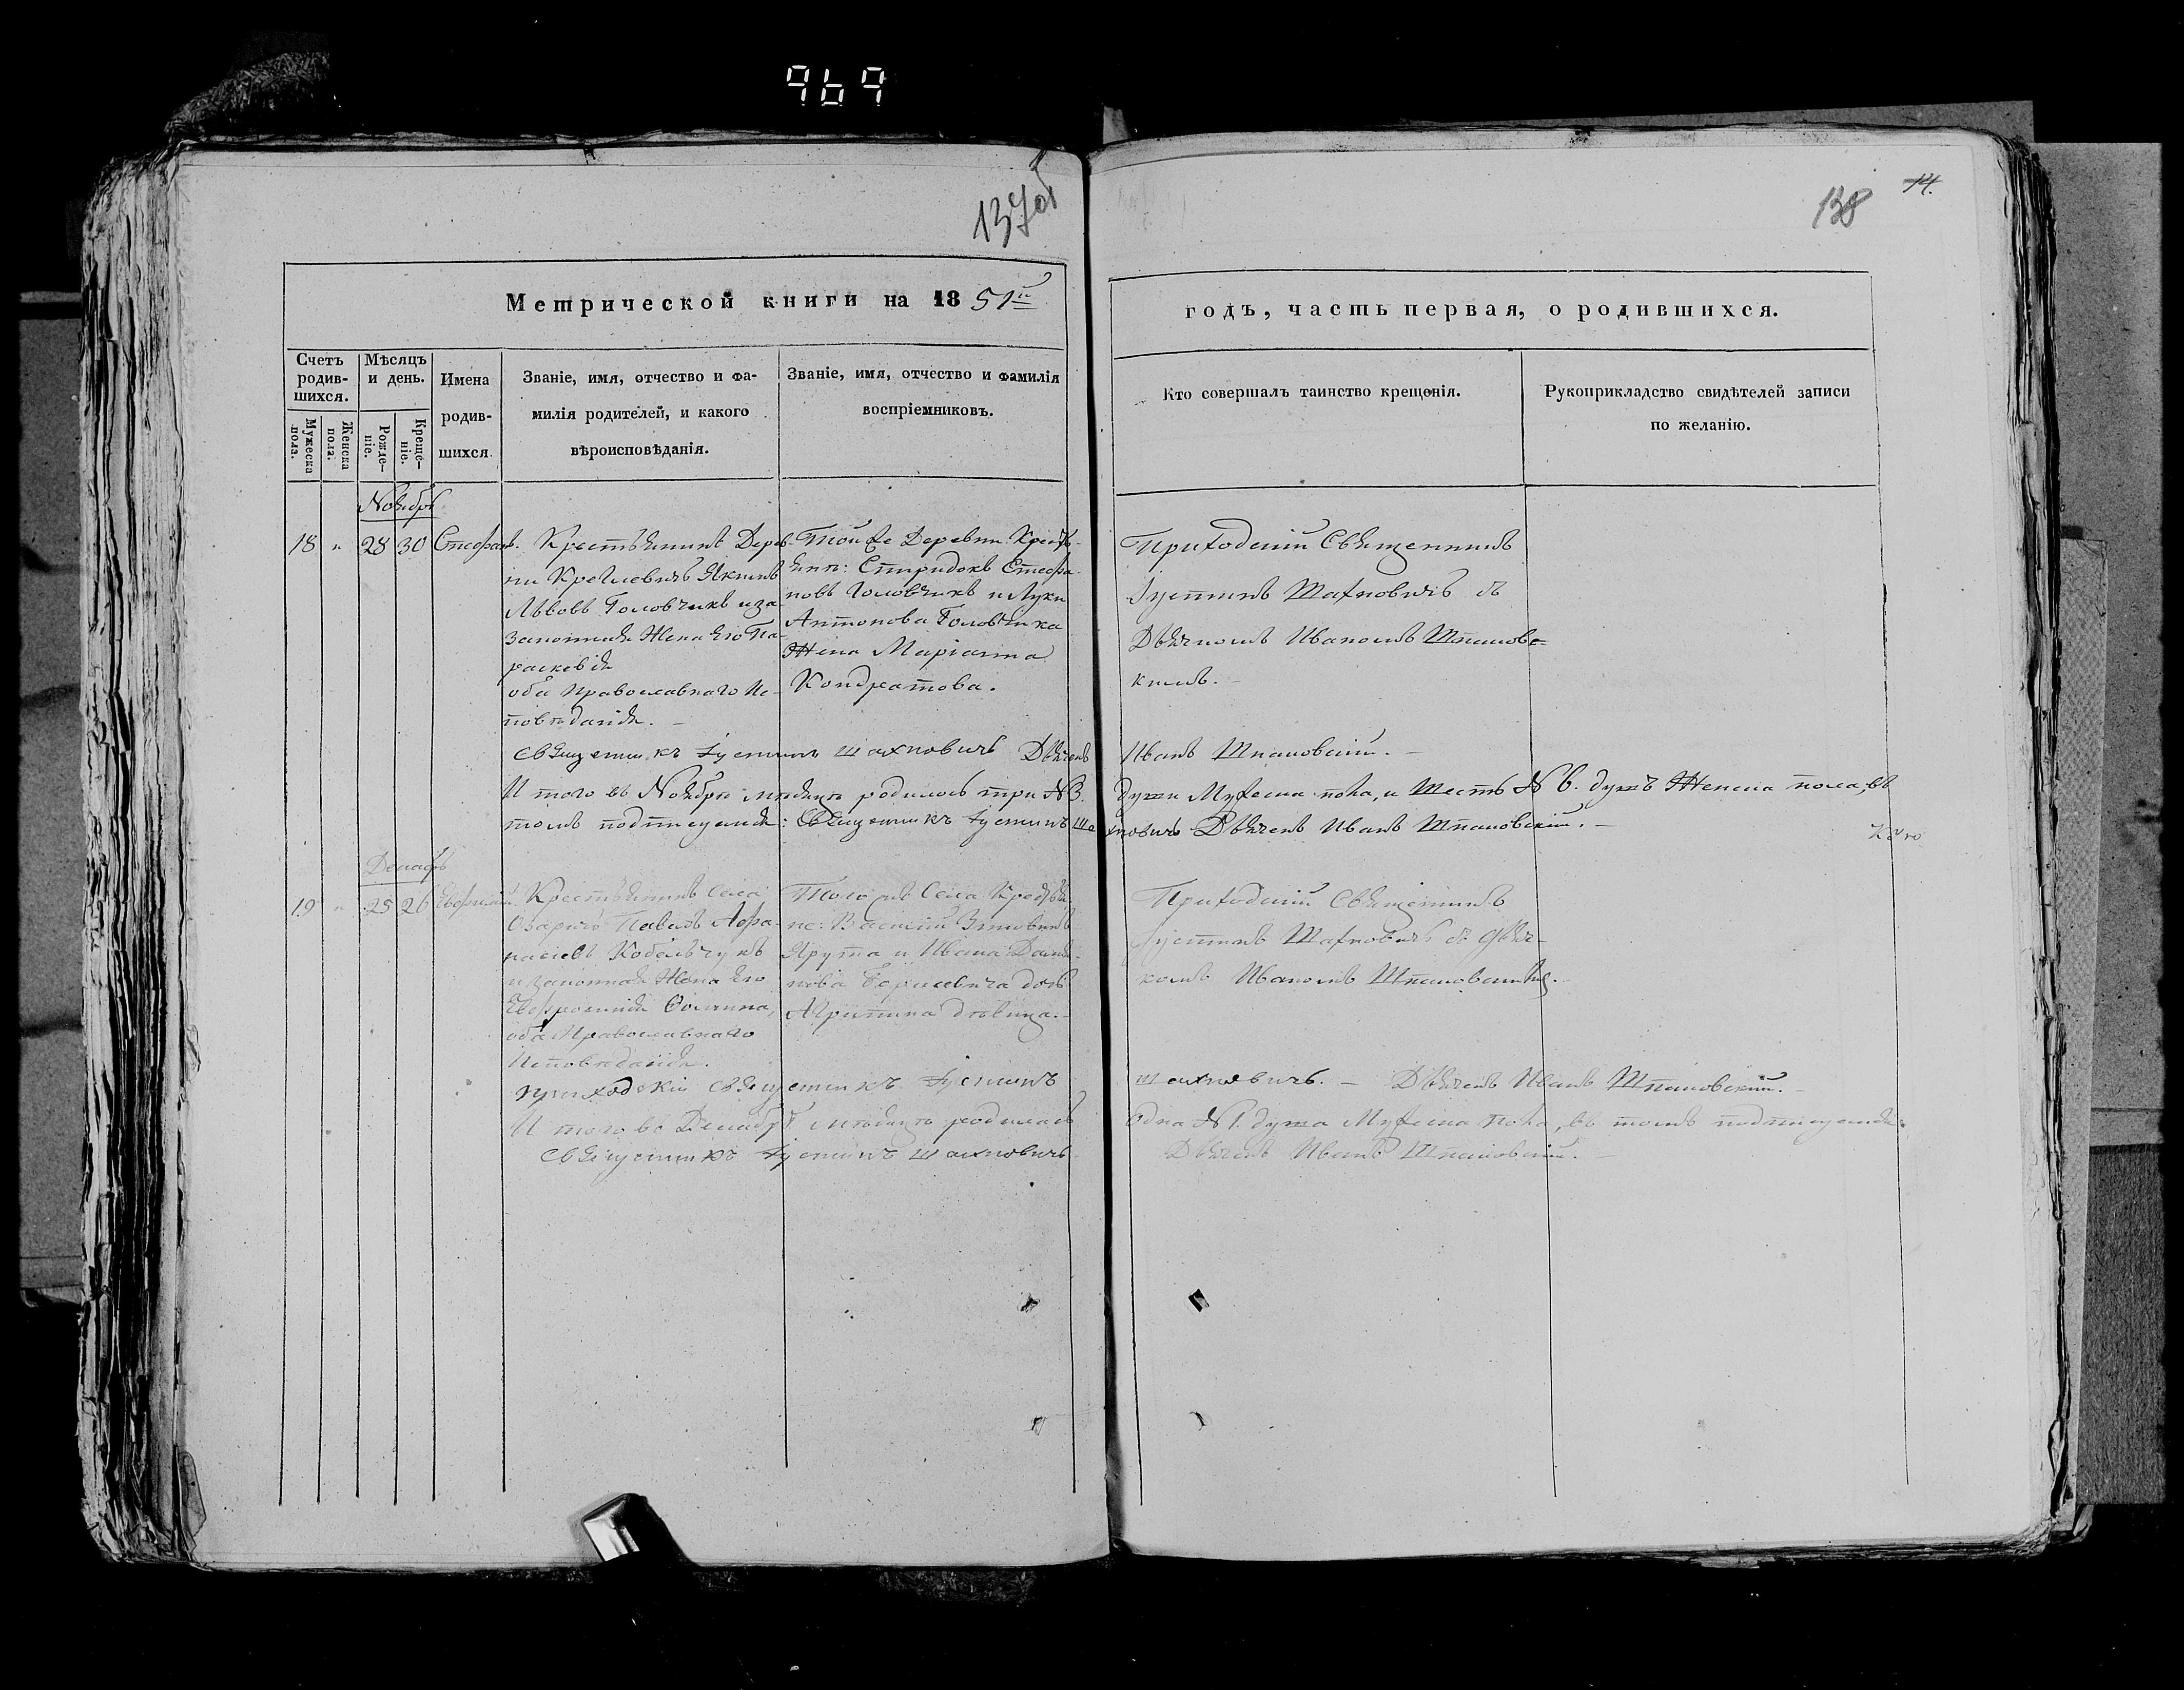 969
137об
138
14.
Метрической книги на 18 51й
годъ, часть первая, о родившихся.
Счетъ родив-
шихся.
Мѣсяцъ
и день.
Имена
родив-
шихся.
Званіе, имя, отчество и фа-
милія родителей, и какого
вѣроисповѣданія.
Званіе, имя, отчество и фамилія
воспріемниковъ.
Кто совершалъ таинство крещенія.
Рукоприкладство свидѣтелей записи
по желанію.
Мужеска
пола.
Женска
пола.
Рожде-
ніе.
Креще-
ніе.
Ноябрь
18 „ 28 30 Стефанъ.
Крестьянинъ Дерев-
ни Якимъ
Львовъ Головчикъ и за-
законная Жена его Па-
раскевія
оба Православнаго Ис-
повѣданія. –
Той же Деревни Кресть-
янъ: Спиридонъ Стефа-
новъ Головчикъ и Луки
Антонова Головчика
Жена Маріанна
Кондратова.
Приходскій Священникъ
Іустинъ Шахновичъ съ
Дьячкомъ Иваномъ Шпановс-
кимъ. –
Священникъ Іустинъ Шахновичъ Дьячекъ Иванъ Шпановскій. –
И того въ Ноябрѣ мѣсяцѣ родилось три № 3. души Мужеска пола, и шесть № 6. душъ Женска пола, въ
томъ подписуемся: Священникъ Іустинъ Шахновичъ Дьячекъ Иванъ Шпановскій. –
Декабрь
19 „ 25 26 Евфимій.
Крестьянинъ Села
Озаричъ Павелъ Афа-
насіевъ Кобельчукъ
и законная Жена Его
Евфросинія Фомина,
оба Православнаго
Исповѣданія.
Того жъ Села Крестья-
не: Василій Зиновьевъ
Ярута и Ивана Дани-
лова Борисевича дочь
Агрипина дѣвица. –
Приходскій Священникъ
Іустинъ Шахновичъ съ Дьяч-
комъ Иваномъ Шпановскимъ. –
Приходскій Священникъ Іустинъ Шахновичъ. – Дьячекъ Иванъ Шпановскій. –
И того въ Декабрѣ мѣсяцѣ родилась одна № 1. душа Мужеска пола, въ томъ подписуемся.
Священникъ Іустинъ Шахновичъ Дьячекъ Иванъ Шпановскій. –